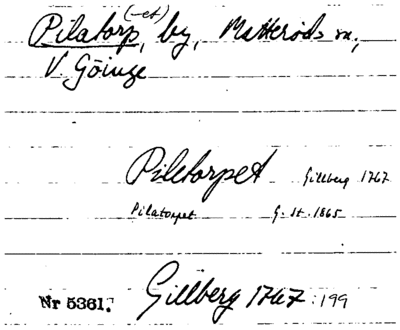 (-et)
Pilatorp, by, Matteröds sn,
V. Göinge
Piletorpet Gillberg 1767
Pilatorpet G. St. 1865
Nr 5361. Gillberg 1767:199